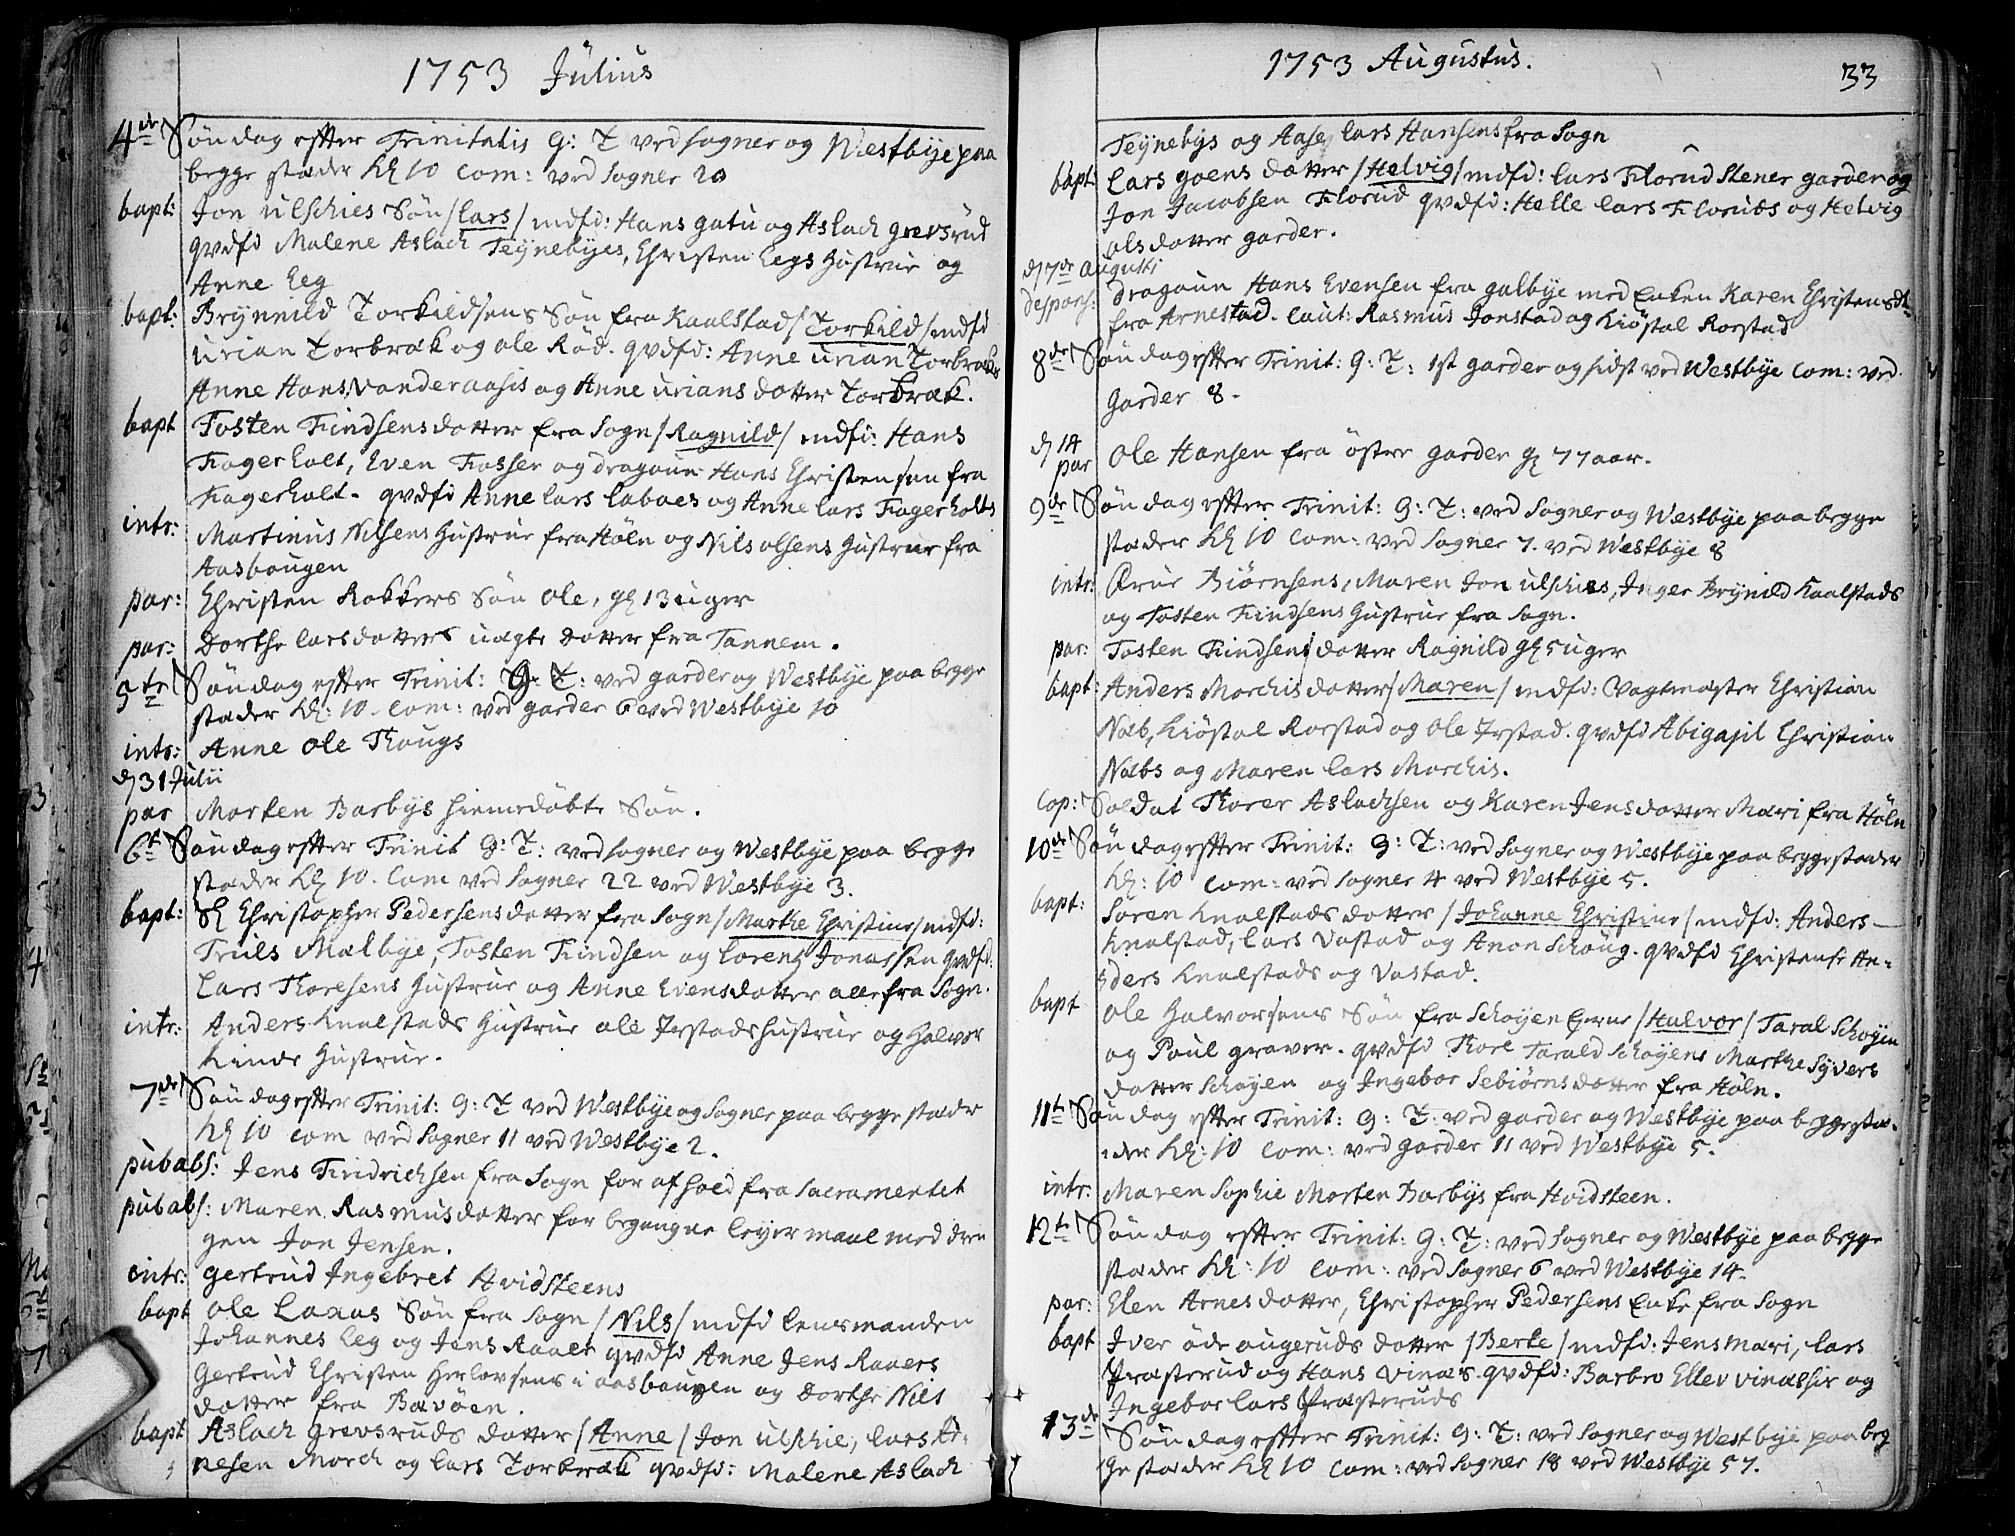 1753 Julius
4de Søndag effter Trinitatis G: T ved Sogner og Westbye paa
begge stæder Kl 10 Com: ved Sogner 20
bapt: Jon Ulschies Søn /Lars/ mdfd: Hans gatu og Aslach grevsrud
qvdfd Malene Aslach Teÿnebÿes, Christen Eegs Hustrue og
Anne Eeg
bapt: Brÿnnild Torkildsens Søn fra Kaalstad /Torkild/ mdfd
Urian Torbræk og Ole Röd. qvdfd: Anne Urian Torbræks
Anne Hans Vanderaasis og Anne Urians dotter Torbræk.
bapt Tosten Findsens dotter fra Sogn /Ragnild/ mdfd: Hans
Fagerholt, Even Fosser og dragoun Hans Christensen fra
Fagerholt. qvdfd Anne Lars Labaes og Anne Lars Fagerholts
intr: Martinus Nilsens Hustrue fra Höln og Nils Olsens Hustrue fra
Aasbougen
par: Christen Rokkers Søn Ole, gl 13 uger
par: Dorthe Larsdotters uægte dotter fra Tannem.
5te Søndag effter Trinit: G: T: ved garder og Westbye paa begge
stæder Kl: 10. Com: ved garder 6 ved Westbye 10
intr: Anne Ole Thougs
d 31 Julii
par Morten Barbÿs hiemedöbte Søn.
6te Søndag effter Trinit G: T: ved Sogner og Westbye paa begge
stæder Kl 10. Com ved Sogner 22 ved Westbye 3.
bapt: Sl Christopher Pedersens dotter fra Sogn /Marthe Christine/ mdfd:
Truls Mælbye, Tosten Findsen og Lorentz Jonassen qvdfd:
Lars Thoresens Hustrue og Anne Evensdotter alle fra Sogn.
intr: Anders Knalstads Hustrue Ole Jrstads Hustrue og Halvor
Kinds Hustrue.
7de Søndag effter Trinit: G: T ved Westbye og Sogner paa begge stæder
Kl 10 Com ved Sogner 11 ved Westbye 2.
pub abs: Jens Findrichsen fra Sogn for afhold fra Sacramentet
pub abs: Maren Rasmusdotter for begangne leÿermaal med dren
gen Jon Jensen.
intr: Gertrud Ingebret Hvidsteens
bapt Ole Laxas Søn fra Sogn /Nils/ mdfd Lensmanden
Johannes Eeg og Jens Raaer qvdfd Anne Jens Raaers
Gertrud Christen Herlovsens i aasbougen og Dorthe Nils
dotter fra Bævöen.
bapt Aslach Grevsruds dotter /Anne/ Jon Ulschie, Lars Ar-
nesen Morch og Lars Torbræk qvdfd: Malene Aslach
1753 Augustus. 33
Teÿnebÿs og Aase Lars Hansens fra Sogn
bapt: Lars goens dotter /Helvig/ mdfd: Lars Florud Stener garder og
Jon Jacobsen Florud qvdfd: Helle Lars Floruds og Helvig
Olsdotter garder.
d 7de Augusti
despons: dragoun Hans Evensen fra galbye med Enken Karen Christensdt
fra Arnestad. Caut: Rasmus Jonstad og Kiöstal Rorstad
8de Søndag effter Trinit: G: T: 1st garder og sidst ved Westbye Com: ved
Garder 8.
d 14
par Ole Hansen fra öster garder gl 77 aar.
9de Søndag effter Trinit: G: T: ved Sogner og Westbye paa begge
stæder Kl 10 Com: ved Sogner 7. ved Westbye 8
intr: Biörnsens, Maren Jon Ulschies, Inger Brÿnild Kaalstads
og Tosten Findsens Hustrue fra Sogn.
par: Tosten Findsens dotter Ragnild gl 5 uger
bapt: Anders Morchis dotter /Maren/ mdfd: Vagtmester Christian
Næb, Kiöstal Rorstad og Ole Jrstad. qvdfd Abigajil Christian
Næbs og Maren Lars Morchis.
Cop: Soldat Thorer Aslachsen og Karen Jensdotter Mari fra Höln
10de Søndag effter Trinit: G: T: ved Sogner og Westbye paa begge stæder
Kl: 10 Com: ved Sogner 4 ved Westbye 5.
bapt: Sören Knalstads dotter /Johanne Christine/ mdfd: Anders
Knalstad, Lars Vastad og Anon Schoug. qvdfd Christense An-
ders Knalstads og Vastad.
bapt Ole Halvorsens Søn fra Schoÿen Eÿerne /Halvor/ Taral Schoÿen
og Poul graver. qvdfd Thore Tarald Schoÿens Marthe Sÿvers
dotter Schoÿen og Ingebor Sebiörnsdotter fra Höln.
11te Søndag effter Trinit: G: T: ved garder og Westbye paa begge stæ-
der Kl: 10 Com: ved garder 11 ved Westbye 5.
intr: Maren Sophie Morten Barbÿs fra Hvidsteen.
12te Søndag effter Trinit: G: T: ved Sogner og Westbye paa begge
stæder Kl: 10 Com: ved Sogner 6 ved Westbye 14.
par: Elen Arnesdotter, Christopher Pedersens Enke fra Sogn
bapt Iver öde augeruds dotter /Berte/ mdfd: Jens Mari, Lars
Præsterud og Hans Vinæs. qvdfd: Barbro Ellev Vinæssis og
Ingebor Lars Præsteruds
13de Søndag effter Trinit: G: T: ved Sogner og Westbye paa beg
ge stæder Kl 10 Com: ved Sogner 18 ved Westbye 57.